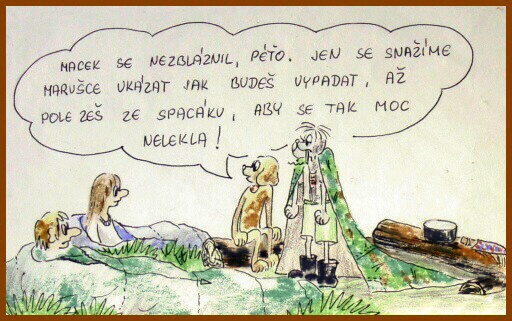 MACEK SE NEZBLÁZNIL, PÉŤO. JEN SE SNAŽÍME
MARUŠCE UKÁZAT JAK BUDEŠ VYPADAT, AŽ
POLEZEŠ ZE SPACÁKU, ABY SE TAK MOC
NELEKLA!